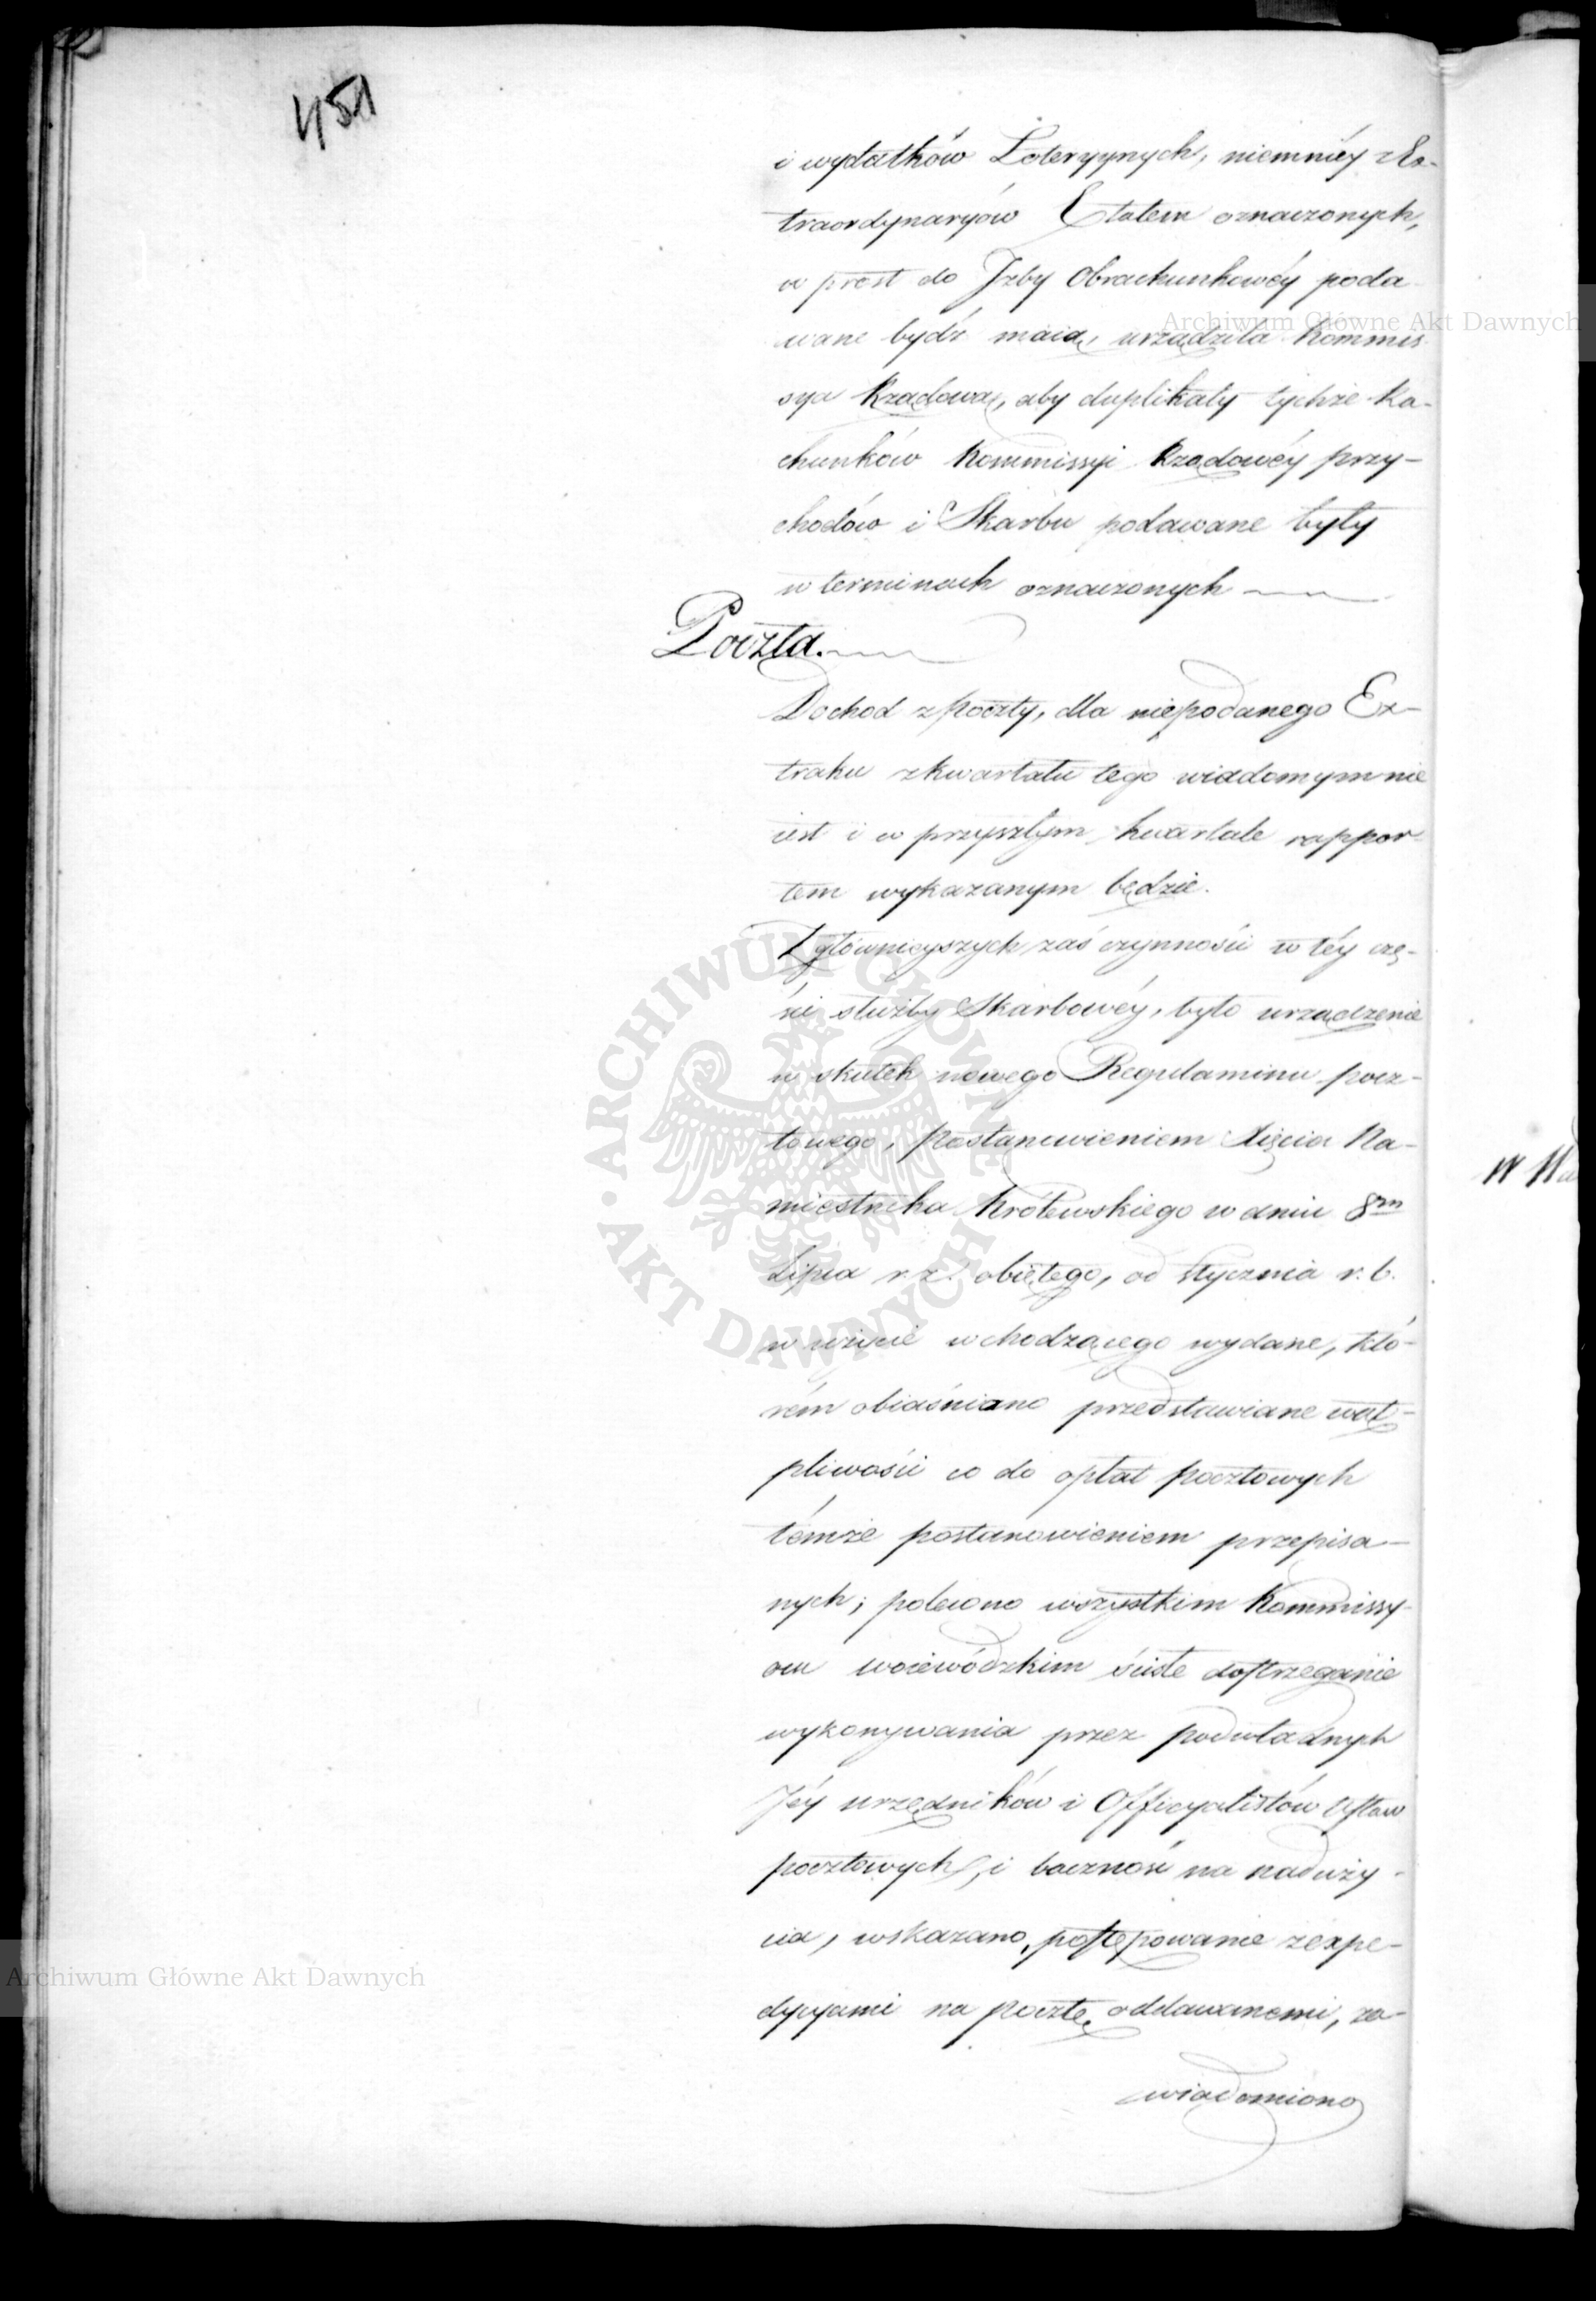 451
i wydatków Loteryynych, niemniéy z Ex-
traordynaryów Etatem oznaczonych,
w prost do Jzby Obrachunkowéy poda-
Archiwum Główne Akt Dawnych
wane bydź maią, urządziła Kommis-
sya Rządowa, aby duplikaty tychże Ra-
chunków Kommissyi Rządowéy przy-
chodów i Skarbu podawane były
w terminach oznaczonych
Poczta.
Dochod z Poczty, dla niepodanego Ex-
traktu z kwartału tego wiadomym nie
iest i w przyszłym kwartale rappor-
tem wykazanym będzie.
Z główniejszych zaś czynności w téy czę-
ści służby Skarbowéy, było urządzenie
w skutek nowego Regulaminu pocz-
towego, Postanowieniem Xięcia Na-
miestnika Królewskiego w dniu 8m
Lipca r. z. obiętego, od Stycznia r. b.
w użycie wchodzącego wydane, któ-
rém obiaśniono przedstawiane wąt-
pliwości co do opłat pocztowych
témże postanowieniem przepisa-
nych; polecono wszystkim Kommissy-
om woiewódzkim ścisłe dostrzeganie
wykonywania przez podwładnych
Jéy urzędników i Officyalistów Ustaw
pocztowych, i baczność na naduży-
cia, wskazano, postępowanie z expe-
Archiwum Główne Akt Dawnych
dycyami na pocztę oddawanemi, za-
wiadomiono
ARCHIWUM GŁÓWNE AKT DAWNYCH